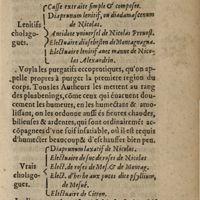 Casse extraite simple & composee.
Diaprunum lenitif, ou diadamascenum
de Nicolas.
Lenitifs
cholago-
gues.
Antidote vniuersel de Nicolas Preuost.
Electuaire diasebesten de Montagnagna.
Electuaire lenitif auec manne de Nico-
las Alexandrin.
Voyla les purgatifs eccoprotiques, qu'on ap-
pelle propres à purger la premiere region du
corps. Toutes les Autheurs les mettent au rang
des phantebenigs, côme ceux qui euacuent dou-
cement les humeurs, en les humectant & amo-
lissant, on les donne, ou seuls, ou auec d'autres
solides & aserrez, & ordinairement sont ac-
côpagnez d'vne soif insatiable, où il est requis
d'humecter beaucoup & d'eschauffer bien peu.
Diaprunum laxatif de Nicolas.
Electuaire de suc de roses de Nicolas
Vrais
cholago-
gues.
Elect. de roses de Mes. & de Montag.
Elect. d'herbe aux puces dite psyllium,
de Mesué.
Electuaire de Citron.